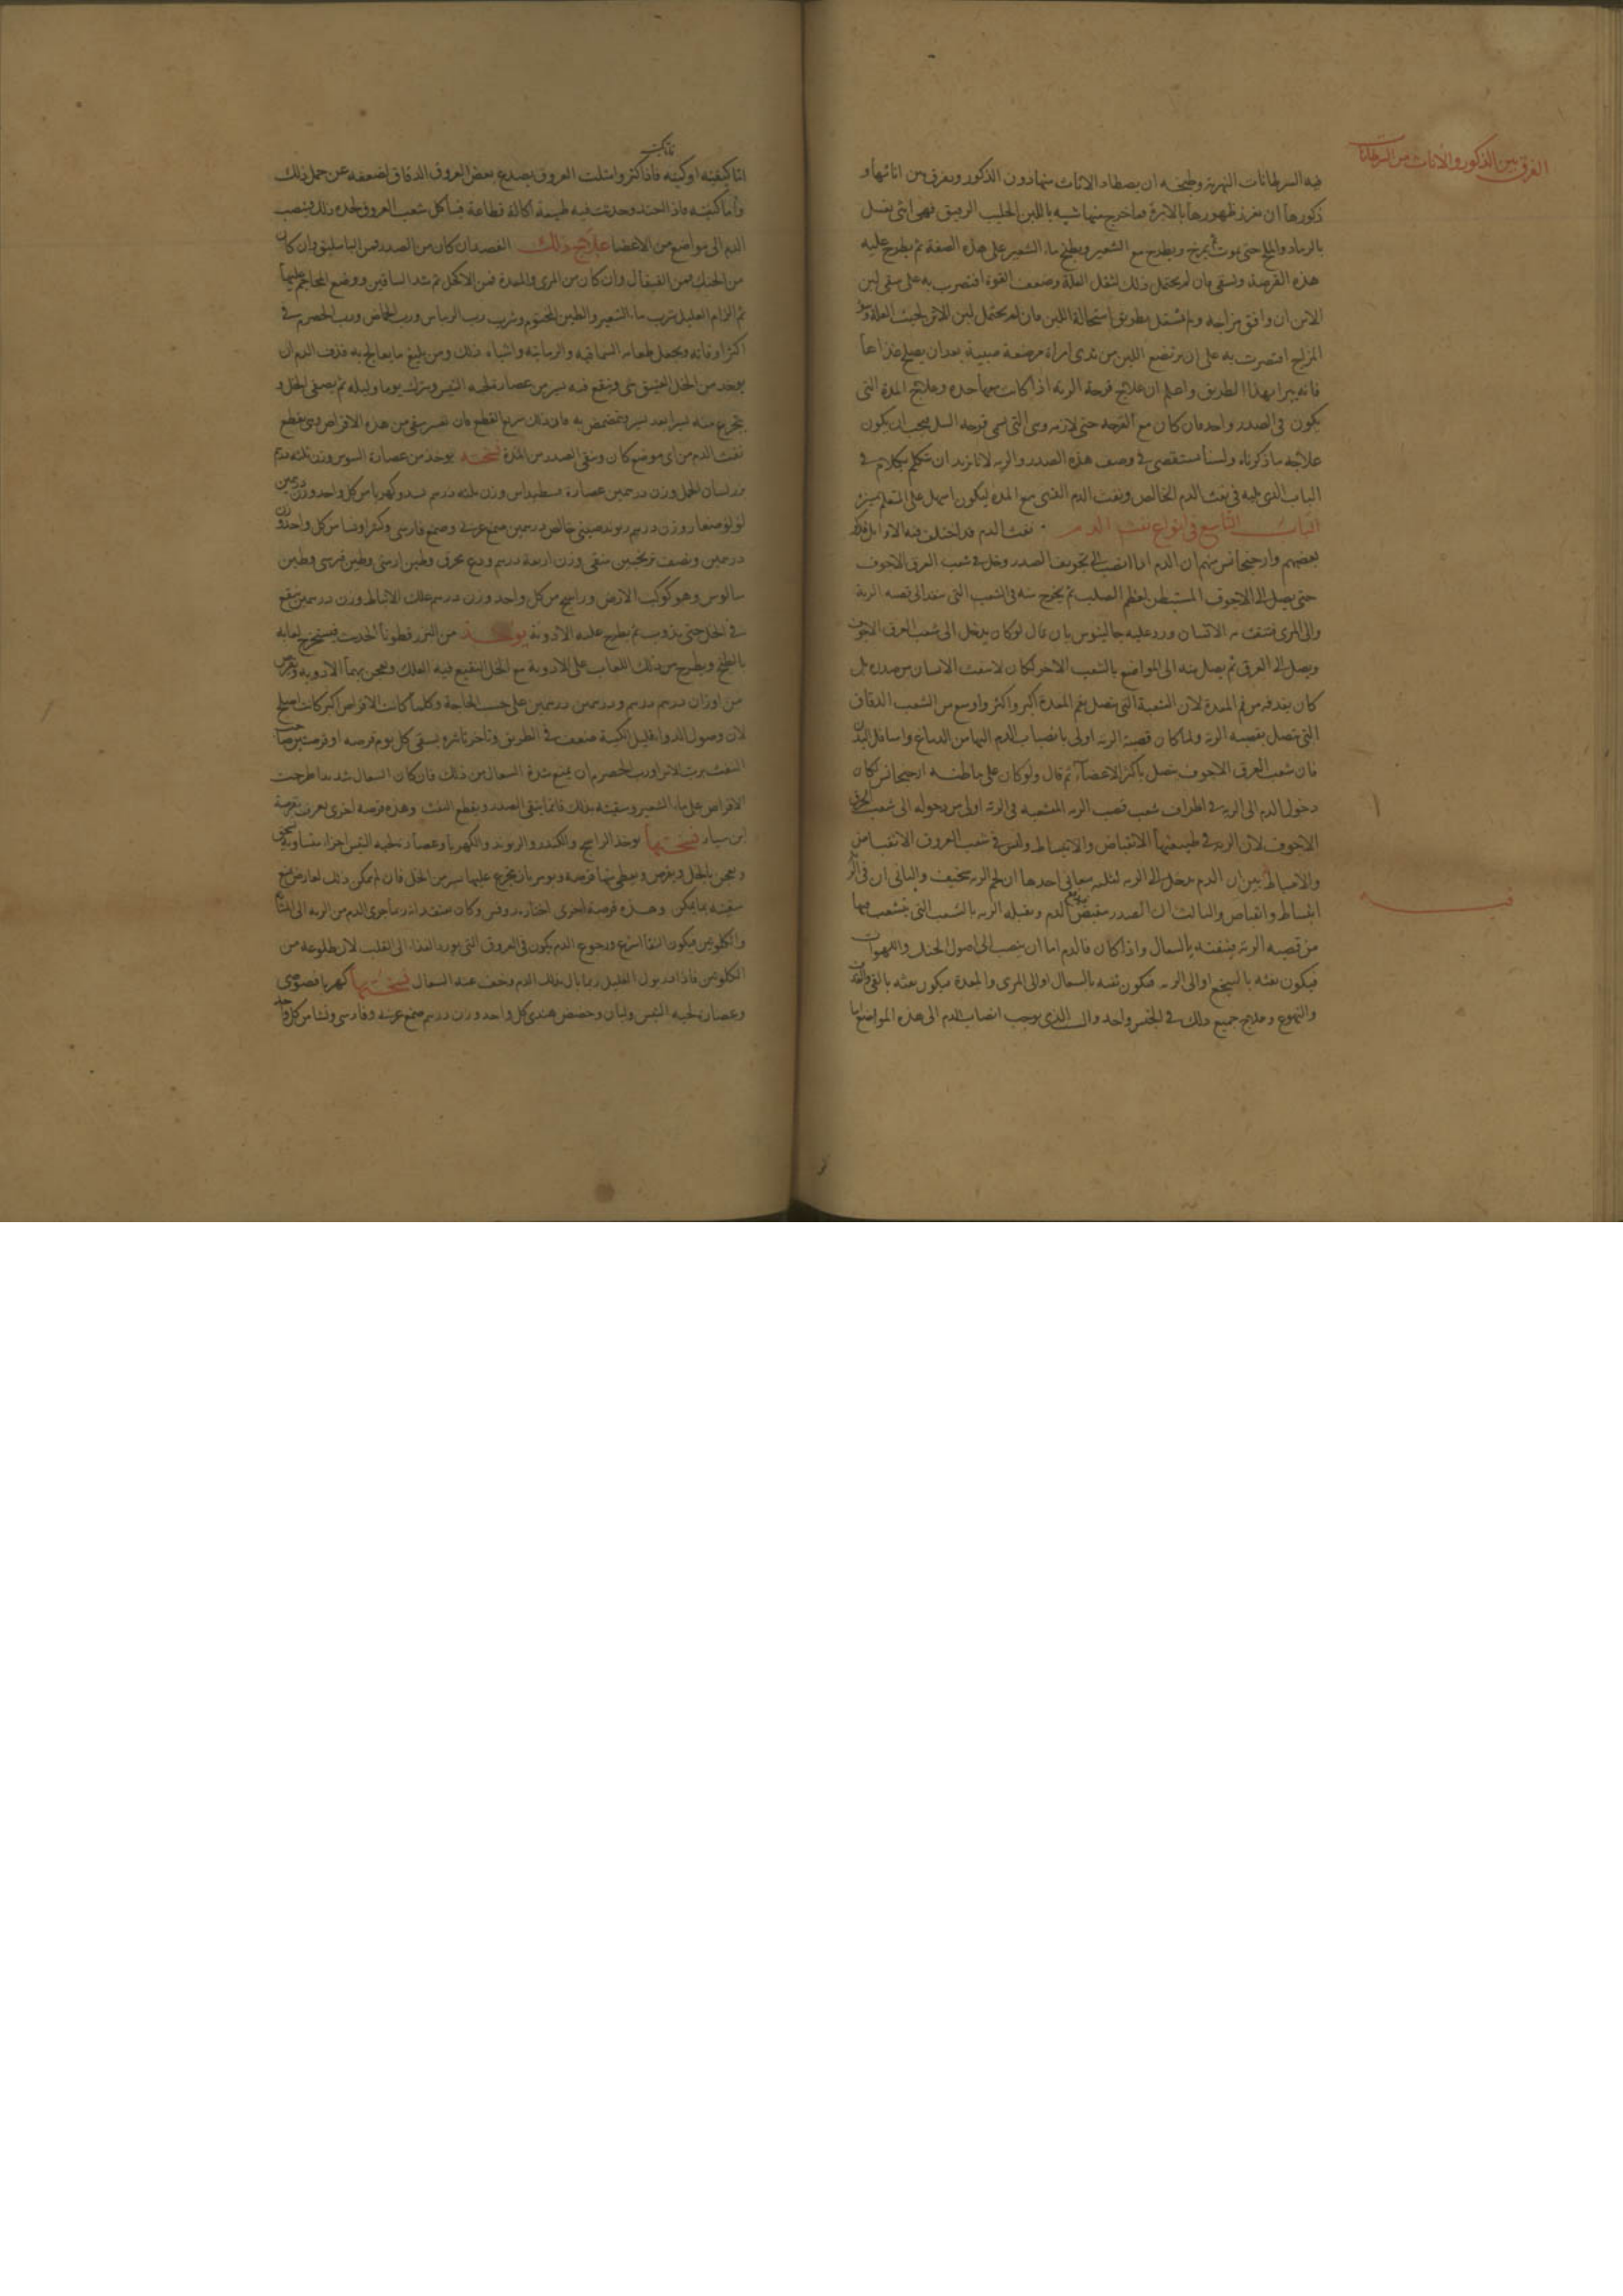 الفرق بين الذكور والاناث من السرطانات
فيه السرطانات النهرية وطبخه ان يصطاد الاناث منها دون الذكور ويفرق بين اناثها و
ذكورها ان يغرز ظهورها بالابرة فما خرج منها شبيه باللبن الحليب الرقيق فهي انثى يغسل
بالرماد والملح حتى يموت ثم يمرخ ويطرح مع الشعير ويطبخ ماء الشعير على هذه الصفة ثم يطرح عليه
هذه القرصة ويسقى فان لم يحتمل ذلك لثقل العلة وضعف القوة اقتصرت به على سقى لبن
الاتن ان وافق مزاجه ولم يثقل بطريق استحالة اللبن فان لم يحتمل لبن الاتن لخبث العلة وسو
المزاج اقتصرت به على ان يرتضع اللبن من ثدى امراة مرضعة صبية بعد ان يصلح غذاها
فانه يبرا بهذا الطريق واعلم ان علاج قرحة الرئه اذا كانت حده وعلاج المدة التى
يكون فى الصدر واحد فان كان مع القرحه حتى لازمه وهى التى تسمى قرحه السل فيجب ان يكون
علاجه ما ذكرناه ولسنا نستقصى فى وصف هذه الصدر والريه لانا نريد ان نتكلم بكلام فى
الباب الذى يليه فى نفث الدم الخالص ونفث الدم الذى مع المدة ليكون اسهل على المتعلم تميزه
الباب التاسع فى انواع نفث الدم نفث الدم قد اختلف فيه الاوايل فذكر
بعضهم وارجيجانس منهم ان الدم اذا انصب الى تجويف الصدر دخل فى شعب العرق الاجوف
حتى يصل الى الاجوف المستبطن لعظم الصلب ثم يخرج منه فى الشعب التى تنفذ الى قصبه الرية
والى المرى فينفث به الانسان ورد عليه جالينوس بان قال لو كان يدخل الى شعب العرق الاجوف
ويصل الى العرق ثم يصل منه الى المواضع بالشعب الاخر لكان لا ينفث الانسان من صدره بل
كان يقذفه من فم المعدة لان الشعبة التى تتصل بفم المعدة اكبر واكثر واوسع من الشعب الدقاق
التى تتصل بقصبه الريه ولما كان قصبة الريه اولى بانصباب الدم اليها من الدماغ واسافل البدن
فان شعب العرق الاجوف يتصل باكثر الاعضاء ثم قال ولو كان على ما ظنه ارجيجانس لكان
دخول الدم الى الريه فى اطراف شعب قصب الريه المنشعبه فى الريه اولى من دخوله الى شعب العرق
الاجوف لان الريه فى طبيعتها الانقباض والانبساط وليس فى شعب العروق الانقباض
والانبساط فبين ان الدم يدخل الى الريه لثلثه معانى احدها ان لحم الريه سخيف والثانى ان فى الريه
انبساط وانقباض والثالث ان الصدر الدم ويقبله الريه بالشعب التى تتشعب فيها
من قصبه الريه فينفثه بالسعال واذا كان فالدم اما ان ينصب الى اصول الحنك واللهوات
فيكون نفثه بالتنخع او الى الريه فيكون نفثه بالسعال او الى المرى والمعدة فيكون نفثه بالقى والقذف
والتهوع وعلاج جميع ذلك فى الجنس واحد والسبب الذى يوجب انصباب الدم الى هذه المواضع اما
اما كيفيته او كميته فاذا كثر وامتلت العروق يصدع بعض العروق الدقاق لضعفه عن حمل ذلك
واما كيفيته فاذا احتد وحدثت فيه طبيعة اكالة قطاعة فياكل شعب العروق لحده ذلك فينصب
الدم الى مواضع من الاعضا علاج ذلك الفصد ان كان من الصدر فمن الباسليق وان كان
من الحنك فمن القيفال وان كان من المرى والمعدة فمن الاكحل ثم شد الساقين ووضع المحاجم عليهما
ثم الزام العليل شرب ماء الشعير والطين المختوم وشرب رب الريباس ورب الحماض ورب الحصرم فى
اكثر اوقاته ويجعل طعامه السماقيه والرمانيه واشباه ذلك ومن بليغ ما يعالج به قذف الدم ان
يوخذ من الخل العتيق شى وينقع فيه يسير من عصارة لحية التيس ويترك يوما وليله ثم يصفى الخل و
يتجرع منه يسيرا بعد يسير ويتمضمض به فان ذلك سريع القطع فان تعسر سقى من هذه الاقراص وهى تقطع
نفث الدم من اى موضع كان وتنقى الصدر من المدة نسخته يوخذ من عصارة السوس وزن ثلثه درهم
بزر لسان الحمل وزن درهمين عصارة وزن ثلثه درهم وكهربا من كل واحد وزن درهمين
لولو صغار وزن درهم ريوند صينى خالص درهمين صمغ عربى وصمغ فارسى وكثيرا ونشا من كل واحد وزن
درهمين ونصف ترنجبين منقى وزن اربعة درهم ودع محرق وطين ارمنى وطين قبرسى وطين
ساموس وهو كوكب الارض وراتينج من كل واحد وزن درهم علك الانباط وزن درهمين ينقع
فى الخل حتى يذوب ثم يطرح عليه الادوية يوخذ من البزرقطونا الحديث فيستخرج لعابه
بالطبخ ويطرح من ذلك اللعاب على الادوية مع الخل المنقع فيه العلك ويعجن بهما الادويه ويقرص
من اوزان درهم درهم ودرهمين درهمين على حسب الحاجة وكلما كانت الاقراص اكبر كانت اصلح
لان وصول الدواء قليل الكمية ضعف فى الطريق وتاخر تاثيره يسقى كل يوم قرصه او قرصتين
النفث برب الاس او رب الحصرم ان لم يمنع شدة السعال من ذلك فان كان السعال شديدا طرحت
الاقراص على ماء الشعير وسقيته بذلك فانها ينقى الصدر ويقطع النفث وهذه قرصة اخرى تعرف بقرصة
ابن سيار نسختها يوخذ الراتينج والكندر والريوند والكهربا وعصارة لحيه التيس اجزاء متساوية يسحق
ويعجن بالخل ويقرص ويعطى منها قرصه ويومر بان يتجرع عليها يسير من الخل فان لم يمكن ذلك لعارض منع
سقيته بما يمكن وهذه قرصة اخرى اختارها روفس وكان يعتقد انه ربما جرى الدم من الريه الى المثانة
والكلوتين فيكون النقا اسرع ورجوع الدم يكون فى العروق التى تورد الغذاء الى القلب لان طلوعه من
الكلوتين فاذا ادر بول العليل ربما بال بذلك الدم وخف عنه السعال نسختها كهربا
وعصارة لحيه التيس ولبان وحضض هندى كل واحد وزن درهم صمغ عربى وفارسى ونشا من كل واحد